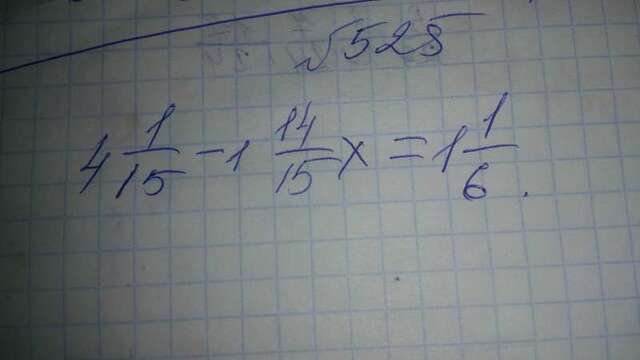 √525
4 1/15 - 1 14/15 x = 1 1/6.